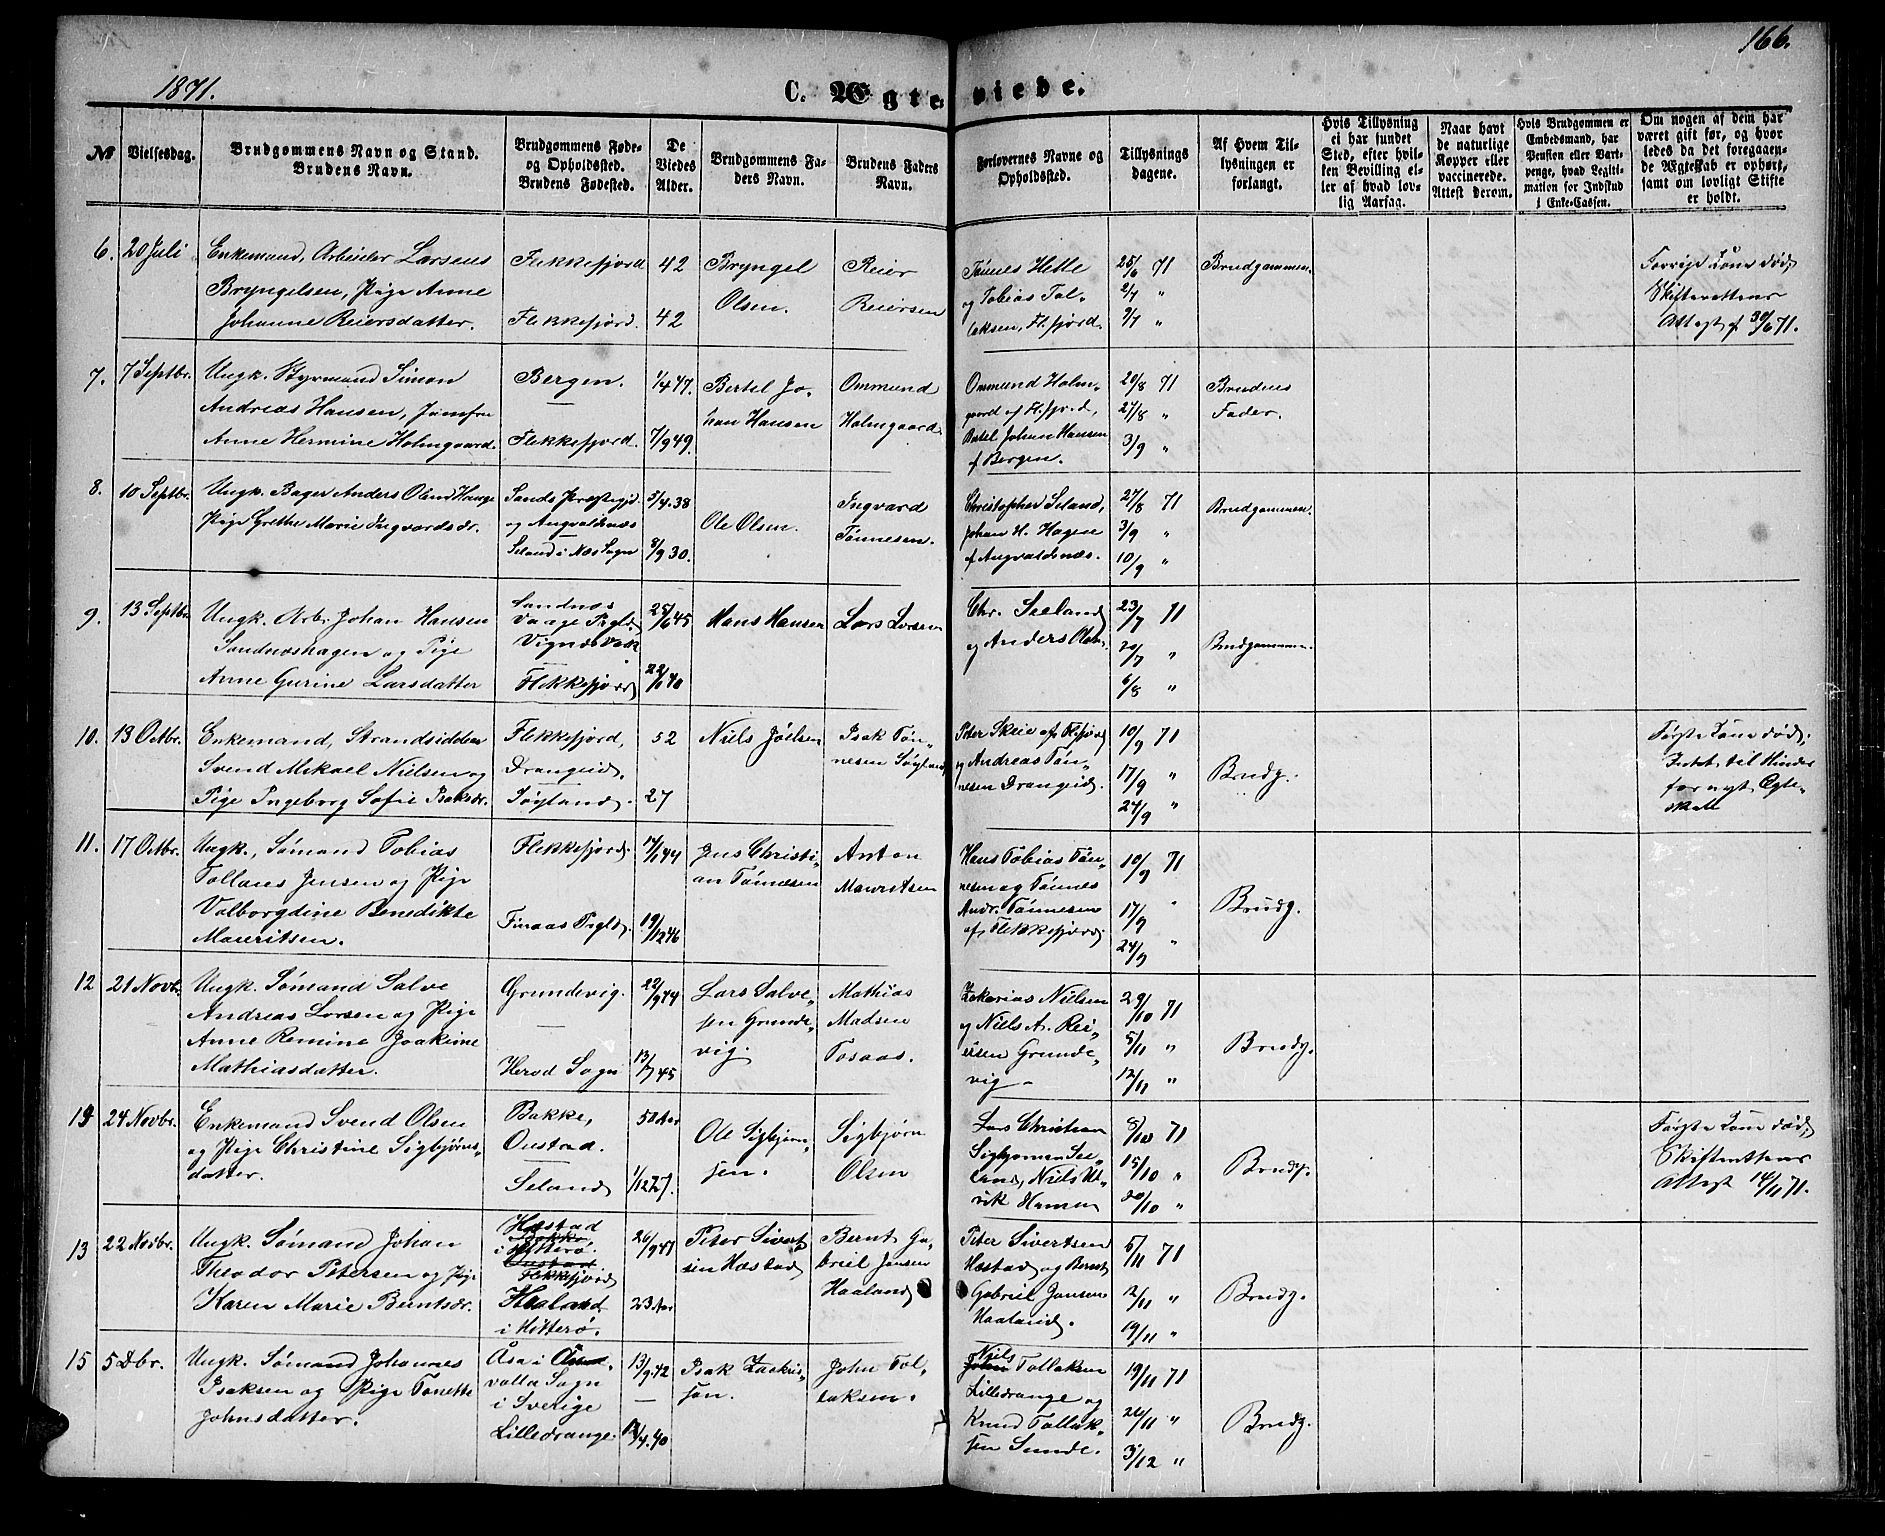 1871.
C. Ægteviede.
166.
№
Vielsesdag.
Brudgommens Navn og Stand.
Brudens Navn.
Brudgommens Føde-
og Opholdssted.
Brudens Fødested.
De
Viedes
Alder.
Brudgommens Fa-
ders Navn.
Brudens Faders
Navn.
Forlovernes Navne og
Opholdssted.
Tillysnings
dagene.
Af Hvem Til-
lysningen er
forlangt.
Hvis Tillysning
ei har fundet
Sted, efter hvil-
ken Bevilling el-
ler af hvad lov-
lig Aarsag.
Naar havt
de naturlige
Kopper eller
vaccinerede.
Attest derom.
Hvis Brudgommen er
Embedsmand, har
Pension eller Vart-
penge, hvad Legiti-
mation for Indskud
i Enke-Cassen.
Om nogen af dem har
været gift før, og hvor
ledes da det foregaaen-
de Ægteskab er ophørt,
samt om lovligt Skifte
er holdt.
6.
20 Juli
Enkemand, Arbeider Larsens
Bryngelsen, Pige Anne
Johanne Reiersdatter.
Flekkefjord
Flekkefjord.
42
42
Bryngel
Olsen.
Reier
Reiersen
Tønnes Helle
og Tobias Tol-
laksen, Fl.fjord.
25/6 71
2/7 "
9/7 "
Brudgommen.
Forrige Kone død,
Skifterettens
Attest f 30/6 71.
7.
7 Septbr.
Ungk. Styrmand Simon
Andreas Hansen, Jomfru
Anne Hermine Holmgaard.
Bergen.
Flekkefjord.
1/4 47.
7/9 49.
Bertel Jo-
han Hansen
Ommund
Holmgaard.
Ommund Holm-
gaard af Fl.fjord,
Bertel Johan Hansen
f Bergen.
20/8 71
27/8 "
3/9 "
Brudens
Fader.
8.
10 Septbr.
Ungk. Bager Anders Olsen Hauge
Pige Grethe Marie Ingvardsdr.
Sands Præstegjd
og Augvaldsnæs
Seland i Næs Sogn
3/4.38
8/9 30.
Ole Olsen.
Ingvard
Tønnesen.
Christopher Seland,
Johan H. Hagen
f Augvaldsnæs.
27/8 71
3/9 "
10/9 "
Brudgommen.
9.
13 Septbr
Ungk. Arb. Johan Hansen
Sandnæshagen og Pige
Anne Gurine Larsdatter
Sandnæs
Vaage Pgld
Vignæs
Flekkefjord
25/6 45
22/1 40
Hans Hansen
Lars Larsen
Chr. Seeland
og Anders Olsen.
23/7 71
20/7 "
6/8 "
Brudgommen.
10.
13 Octbr.
Enkemand, Strandsidder
Svend Mikael Nielsen og
Pige Ingeborg Sofie Isaksdr.
Flekkefjord,
Drangeid.
Søgland.
52
27
Niels Joelsen
Isak Tøn-
nesen Søgland
Peter Skeie af Fl.fjord
og Andreas Tøn-
nesen Drangeid
10/9 71
17/9 "
24/9 "
Brudg.
Første Kone død.
Intet til Hinder
for nyt Ægte-
skab
11.
17 Octbr.
Ungk., Sømand Tobias
Tollaus Jensen og Pige
Valborgdine Benedikte
Mauritsen.
Flekkefjord.
Finaas Pgld.
17/1 44
19/12 46
Jens Christi-
an Tønnesen
Anton
Mauritsen
Hans Tobias Tøn-
nesen og Tønnes
Andr. Tønnesen
af Flekkefjord.
10/9 71
17/9 "
24/9 "
Brudg.
12
21 Novb.
Ungk. Sømand Salve
Andreas Larsen og Pige
Anne Romine Joakime
Mathiasdatter.
Grundevig.
Herod Sogn
22/9 44
13/7 45
Lars Salve-
sen Grunde-
vig.
Mathias
Madsen
Tosaas.
Zakarias Nielsen
og Niels A. Rei-
ersen Grunde-
vig.
29/10 71
5/11 "
12/11 "
Brudg.
13
24 Novbr.
Enkemand Svend Olsen
og Pige Christine Sigbjørns-
datter.
Bakke,
Oustad.
Seland
50 Aar
1/12 27.
Ole Sigbjørn-
sen.
Sigbjørn
Olsen
Lars Christian
Sigbjørnsen See-
land, Niels
Hansen
8/10 71
15/10 "
20/10 "
Brudg.
Første Kone død,
Skifterettens
Attest 14/11 71.
13
22 Novbr.
Ungk. Sømand Johan
Theodor Petersen og Pige
Karen Marie Berntsdr.
Hæstad
Bakke,
i Hitterø.
Oustad
Flekkefjord
Haaland
i Hitterø.
26/9 47
23 Aar
Peter Sivert-
sen Hæstad
Bernt Ga-
briel Jansen
Haaland
Peter Sivertsen
Hæstad og Bernt
Gabriel Jansen
Haaland.
5/11 71
12/11 "
19/11 "
Brudg.
15
5 Dbr.
Ungk. Sømand Johannes
Isaksen og Pige Tonette
Johnsdatter.
Åsa i
valla Sogn
i Sverige
Lilledrange
13/9.42
12/4.40
Isak Zakri-
sson.
John Tol-
laksen.
Niels
John Tollaksen
Lilledrange og
Knud Tollak-
sen Sunde.
19/11 71
26/11 "
3/12 "
Brudg.